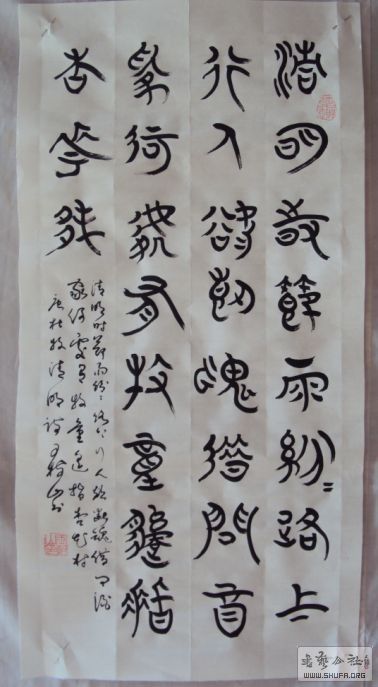 清明時節雨紛〻路上
行人欲斷魂借問酒
家何處有牧童遙指
杏花村
清明时節雨纷〻路上行人欲断魂借问酒
家何處有牧童遥指杏花村
唐杜牧清明诗
书艺公社
WWW.SHUFA.ORG